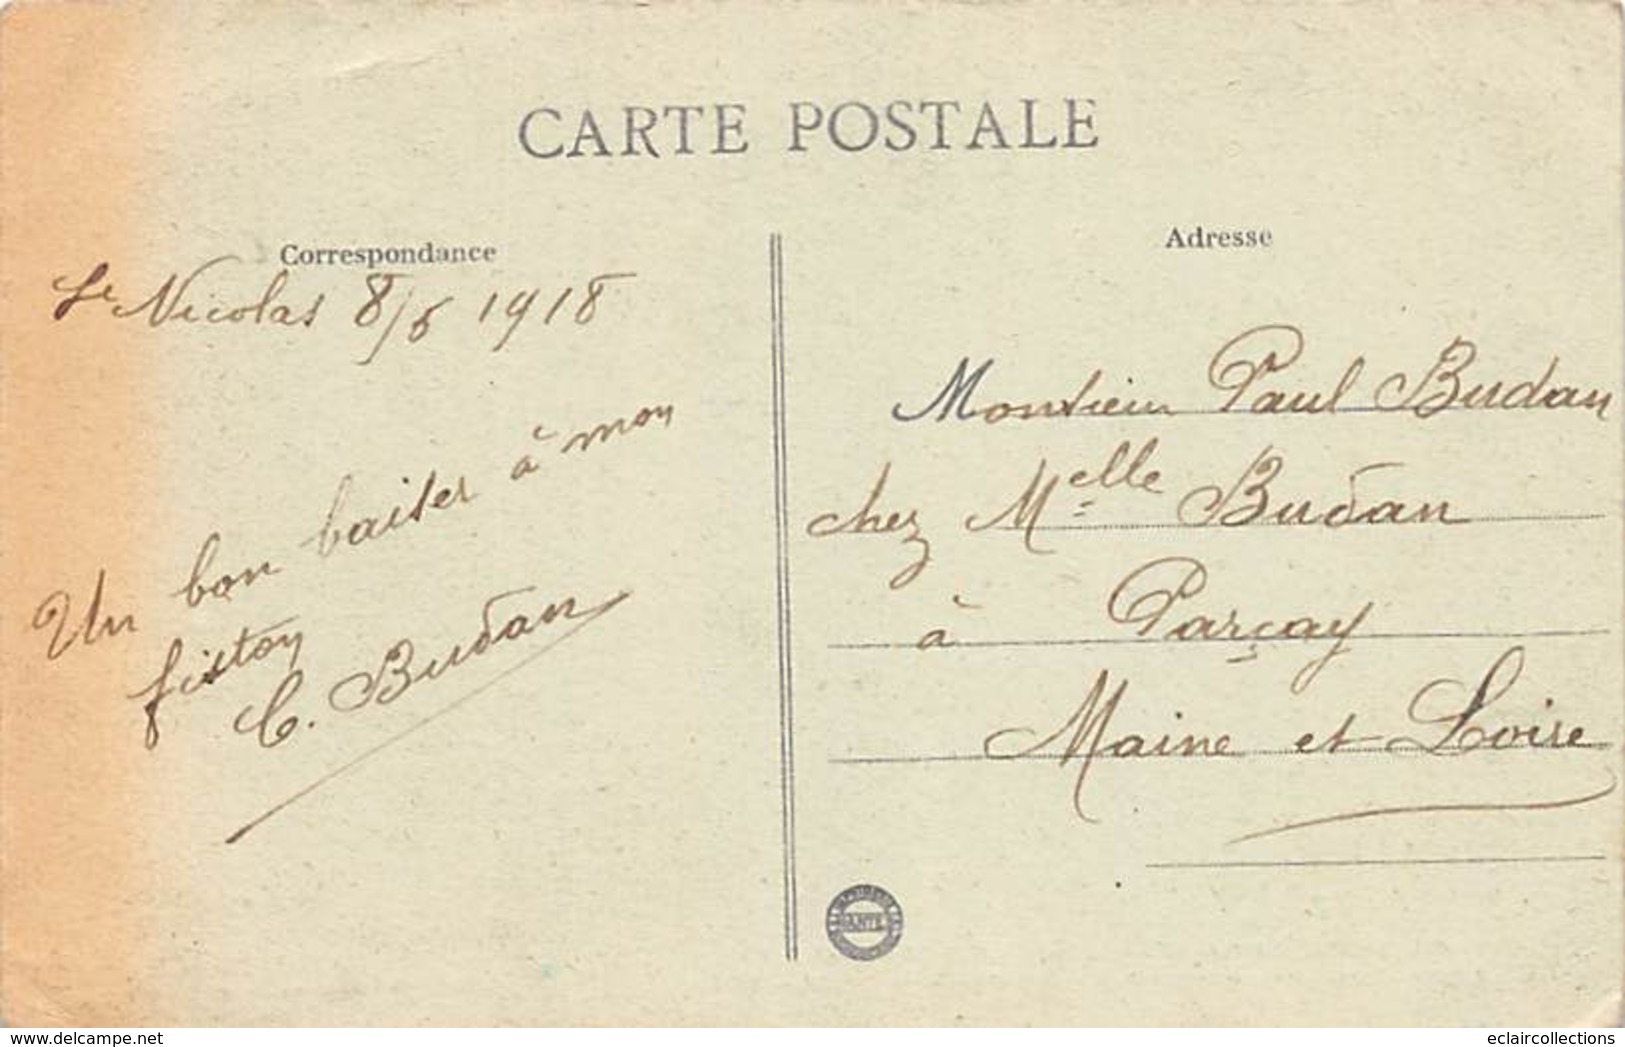 CARTE POSTALE
Correspondance
St Nicolas 8/6 1918
Un bon baiser à mon
fiston
C. Budan
Adresse
Monsieur Paul Budan
chez Melle Budan
à Parçay
Maine et Loire
delcampe.net
eclaircollections